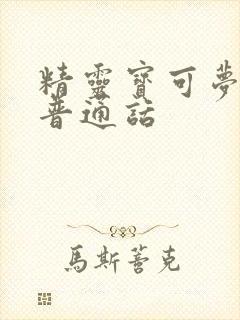 精靈寶可夢
普通話
馬斯善克